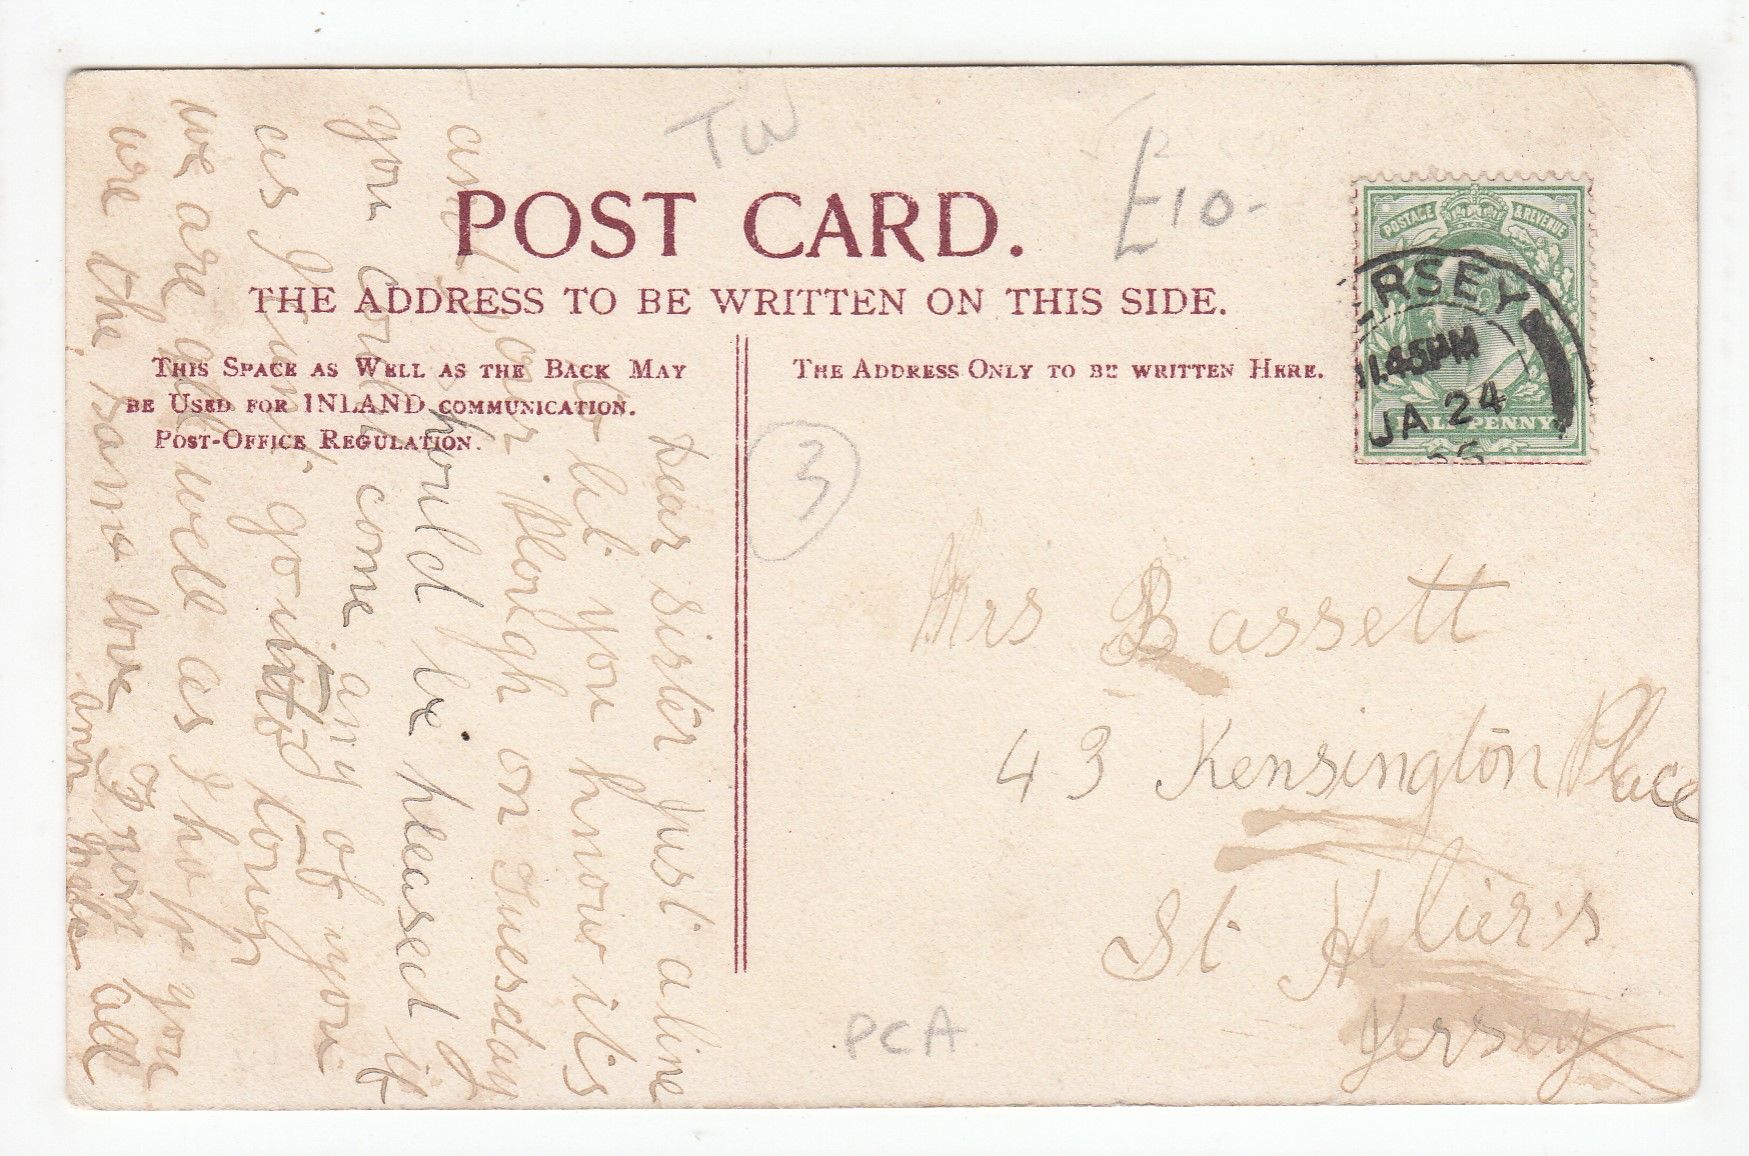 TW
£10-
POST CARD.
THE ADDRESS TO BE WRITTEN ON THIS SIDE.
THIS SPACE AS WELL AS THE BACK MAY
BE USED FOR INLAND COMMUNICATION.
POST-OFFICE REGULATION.
THE ADDRESS ONLY TO BE WRITTEN HERE.
POSTAGE & REVENUE
ERSEY
11.45PM
JA 24
PENNY
3
Dear sister Just a line
to let you know it's
your Plough on Tuesday
and should be pleased if
you could come any of you
as I am going to
we are all well as I hope you
are the same love from all
Mrs Bassett
43 Kensington Place
St Helier's
Jersey
PCA